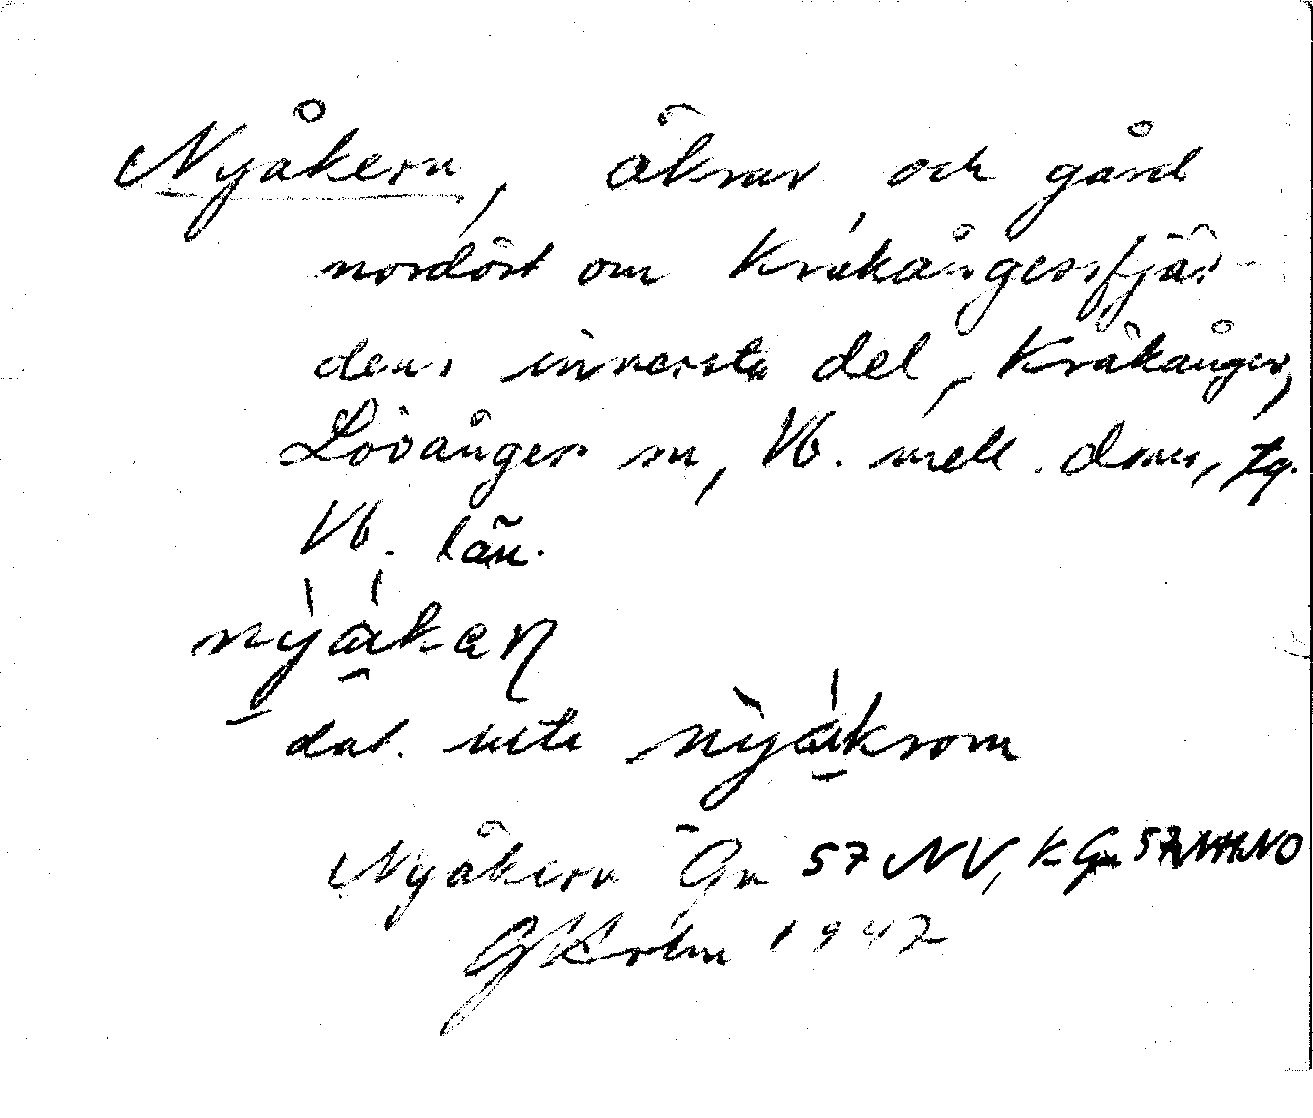 Nyåkern, åkrar och gård
nordöst om Kråkångersfjär-
dens innersta del, Kråkånger,
Lövånger sn, Vb. mell. doms. tg.
Vb. län.
nyåkeɳ
dat. ute nyåkrom
Nyåkern Gn 57 NV, K Gn 57 NO
Holm 1947